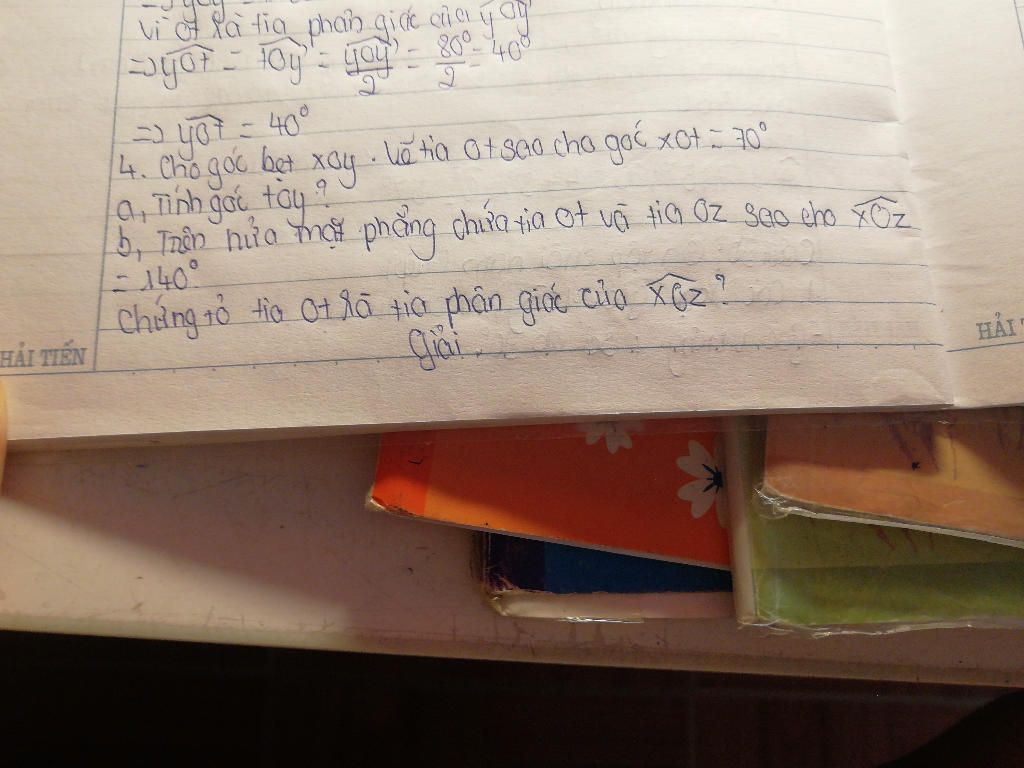 vì Ot là tia phân giác của yOy'
=> yOt = tOy' = yOy'/2 = 80°/2 = 40°
=> yOt = 40°
4. Cho góc bẹt xOy. Vẽ tia Ot sao cho góc xOt = 70°
a, Tính góc tOy?
b, Trên nửa mặt phẳng chứa tia Ot vã tia Oz sao cho xOz
= 140°
Chứng tỏ tia Ot là tia phân giác của xOz?
Giải.
HẢI TIẾN
HẢI T